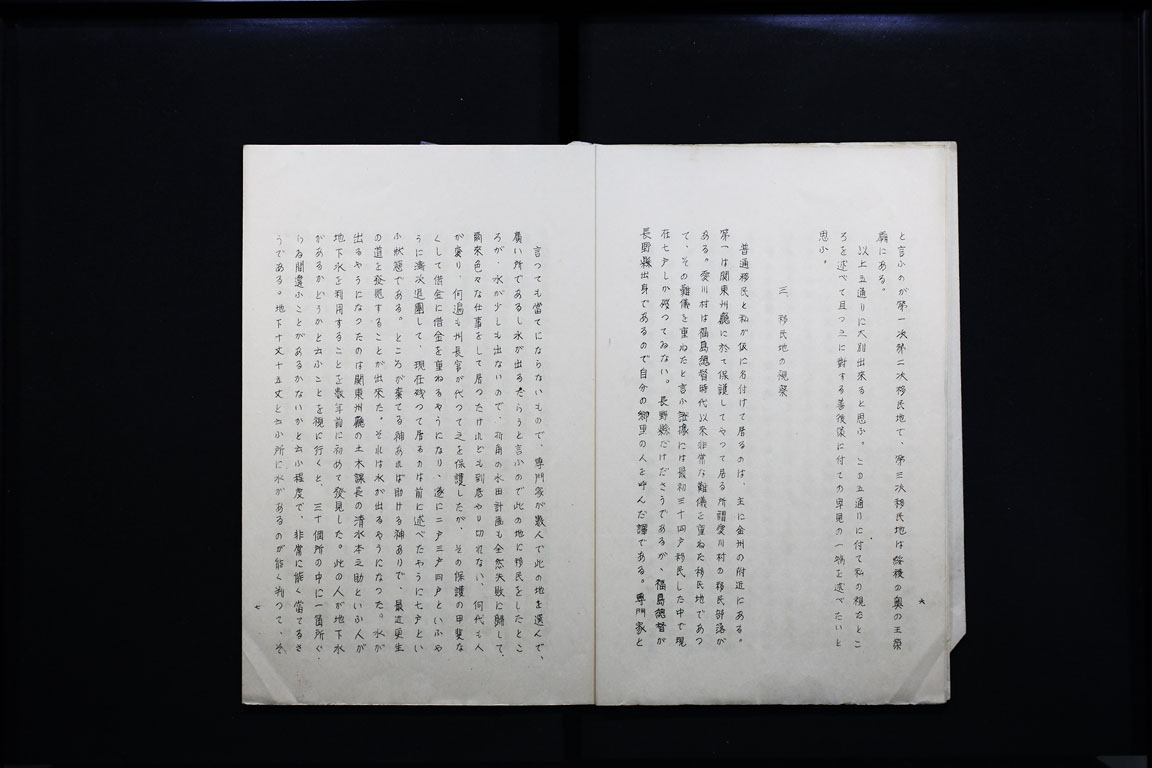 六
と言ふのが第一次第二次移民地で、第三次移民地は綏稜の奥の王榮
廟にある。
以上五通りに大別出来ると思ふ。この五通りに付て私の視たとこ
ろを述べて且つ之に對する善後儀に付ての卑見の一端を述べたいと
思ふ。
三、移民地の視察
普通移民と私が仮に名付けて居るのは、主に金州の附近にある。
第一は関東州廳に於て保護してやつて居る所謂愛川村の移民部落が
ある。愛川村は福島総督時代以来非常な難儀を重ねた移民地であつ
て、その難儀を重ねたと言ふ證據には最初三十四戸移民した中で現
在七戸しか残つてゐない。長野縣だけださうであるが、福島総督が
長野縣出身であるので自分の郷里の人を呼んだ譯である。専門家と
言つても當てにならないもので、専門家が数人で此の地を選んで、
廣い所であるし水が出るだらうと言ふので此の地に移民をしたとこ
ろが、水が少しも出ないので、折角の水田計画も全然失敗に歸して、
爾来色々な仕事をして居つたけれども到底やり切れない、何代も人
が変り、何遍も州長官が代つて之を保護したが、その保護の甲斐な
くして借金に借金を重ねるやうになり、遂に二戸三戸四戸といふや
うに漸次退團して、現在残つて居るのは前に述べたやうに七戸とい
ふ状態である。ところが棄てる神あれば助ける神ありで、最近更生
の道を発見することが出来た。それは水が出るやうになつた。水が
出るやうになつたのは関東州廳の土木課長の清水本之助といふ人が
地下水を利用することを数年前に初めて發見した。此の人が地下水
があるかどうかと云ふことを視に行くと、三十個所の中に一箇所ぐ
らゐ間違ふことがあるかないかと云ふ程度で、非常に能く當てるさ
うである。地下十丈十五丈と云ふ所に水があるのが能く判つて、そ
七